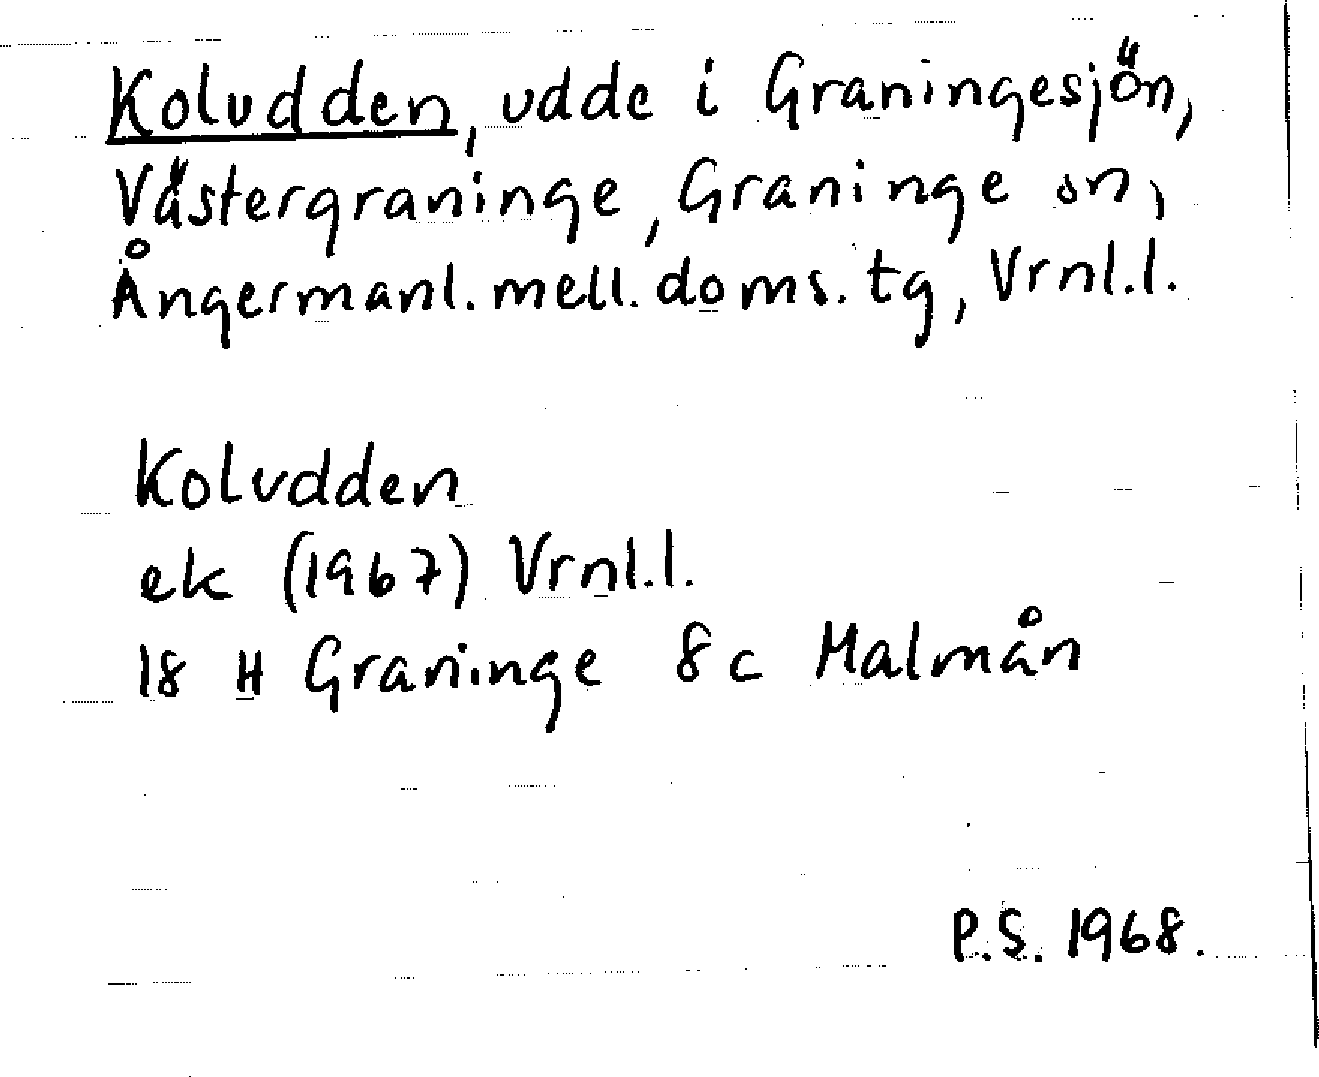 Koludden, udde i Graningesjön,
Västergraninge, Graninge sn,
Ångermanl. mell. doms. tg, Vrnl.l.
Koludden
ek (1967) Vrnl.l.
18 H Graninge 8c Malmån
P.S. 1968.